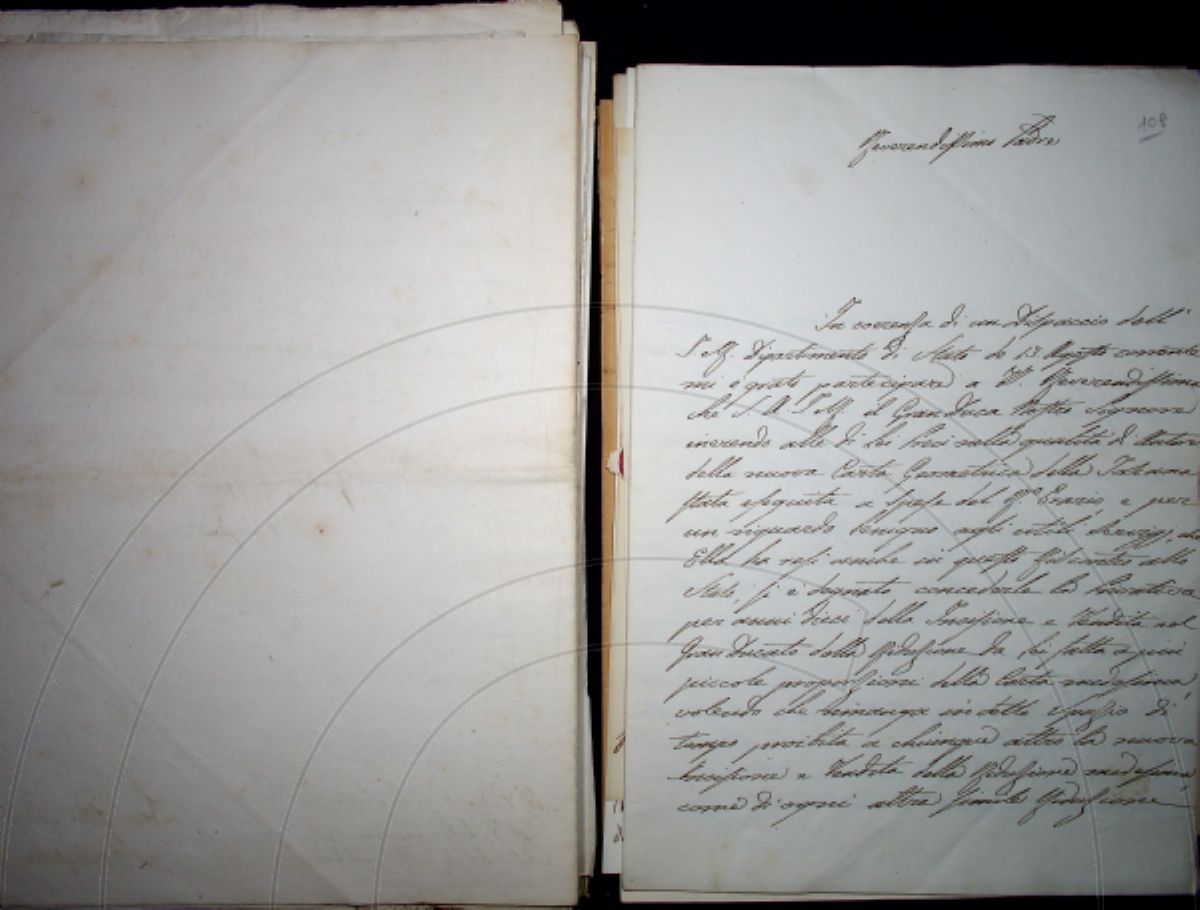 108
Reverendissimo Padre
In coerenza di un Dispaccio dell'
I. R. Dipartimento di Stato de' 13 Agosto corrente
mi è grato partecipare a V. Reverendissima
che S. A. I. R. il Gran Duca Nostro Signore
inerendo alle di Lei Preci nella qualità di Autore
della nuova Carta Geometrica della Toscana
stata eseguita a spese del R.º Erario e per
un riguardo benigno agli utili servizj, che
Ella ha resi anche in questo riscontro allo
Stato, si è degnato concederle la Privativa
per anni dieci della Incisione e Vendita nel
Gran Ducato della Riduzione da Lei fatta a più
piccole proporzioni della Carta medesima,
volendo che rimanga in detto spazio di
tempo proibita a chiunque altro la nuova
Incisione e Vendita della Riduzione medesima,
come di ogni altra simile Riduzione